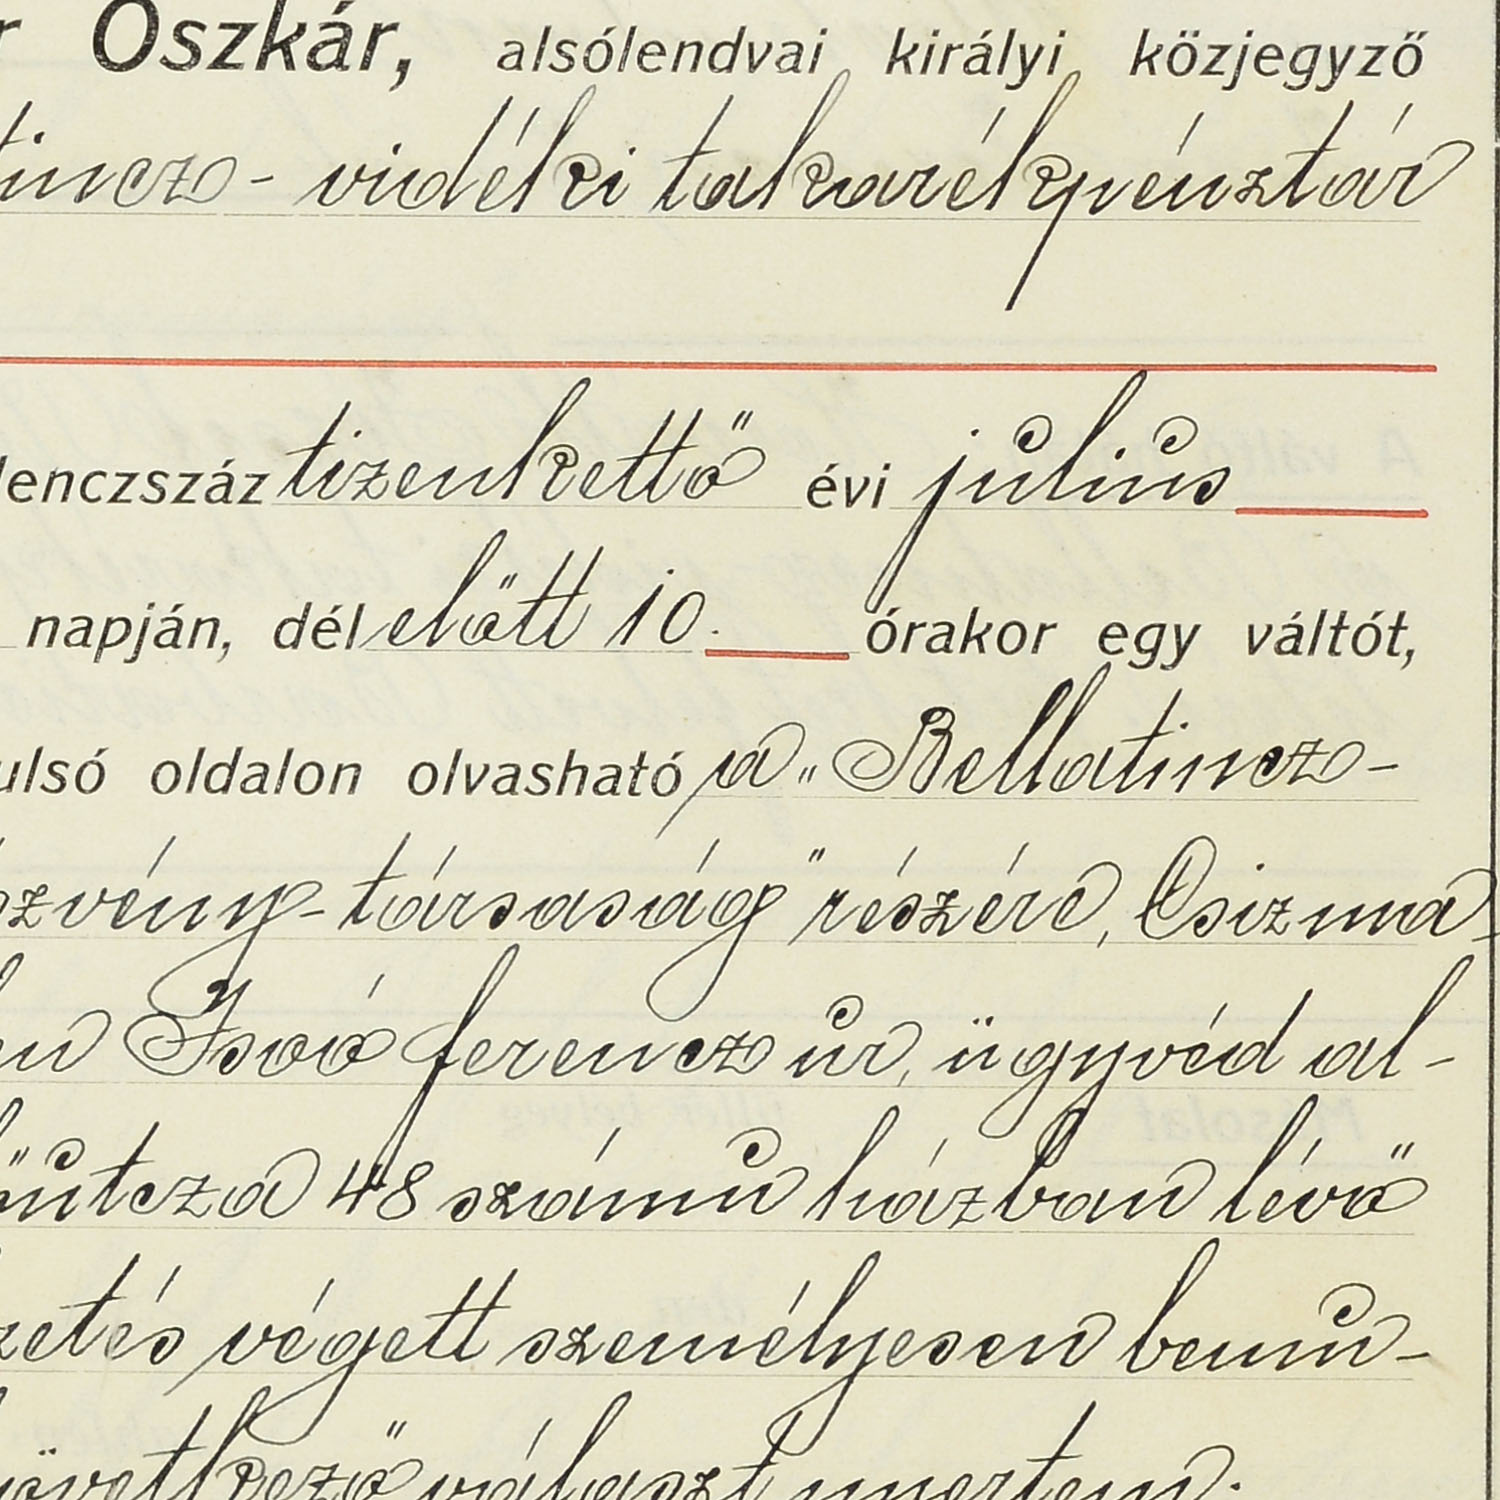 r Oszkár, alsólendvai királyi közjegyző
tincz- vidéki takarékpénztár
lenczszáz tizenkettő évi július
napján, délelőtt 10. órakor egy váltót,
ulsó oldalon olvasható a „Bellatincz-
szvény-társaság" részére, Csizma
en Isoó ferencz úr, ügyvéd al-
utcza 48 számu házban lévő
zetés végett személyesen bemu-
övetkező választ nyertem.